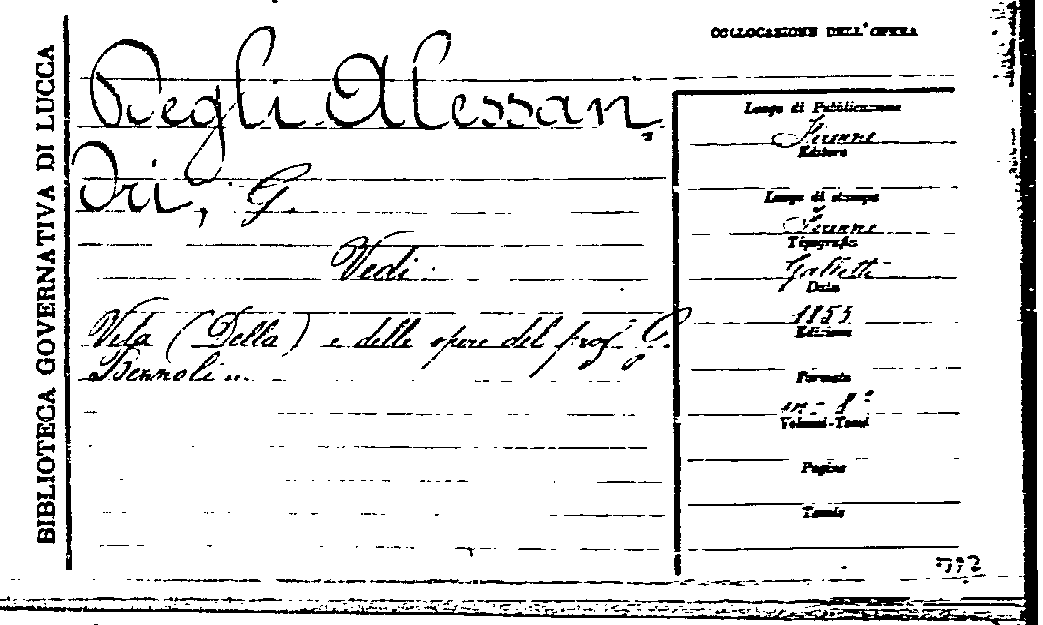 BIBLIOTECA GOVERNATIVA DI LUCCA
COLLOCAZIONE DELL'OPERA
Degli Alessan
dri, G.
Vedi:
Vita (Della) e delle opere del prof. G.
Bennoli...
Luogo di Pubblicazione
Firenze
Editore
Luogo di stampa
Firenze
Tipografia
Galletti
Data
Edizione
Formato
in-8°
Volumi-Tomi
Pagine
Tavole